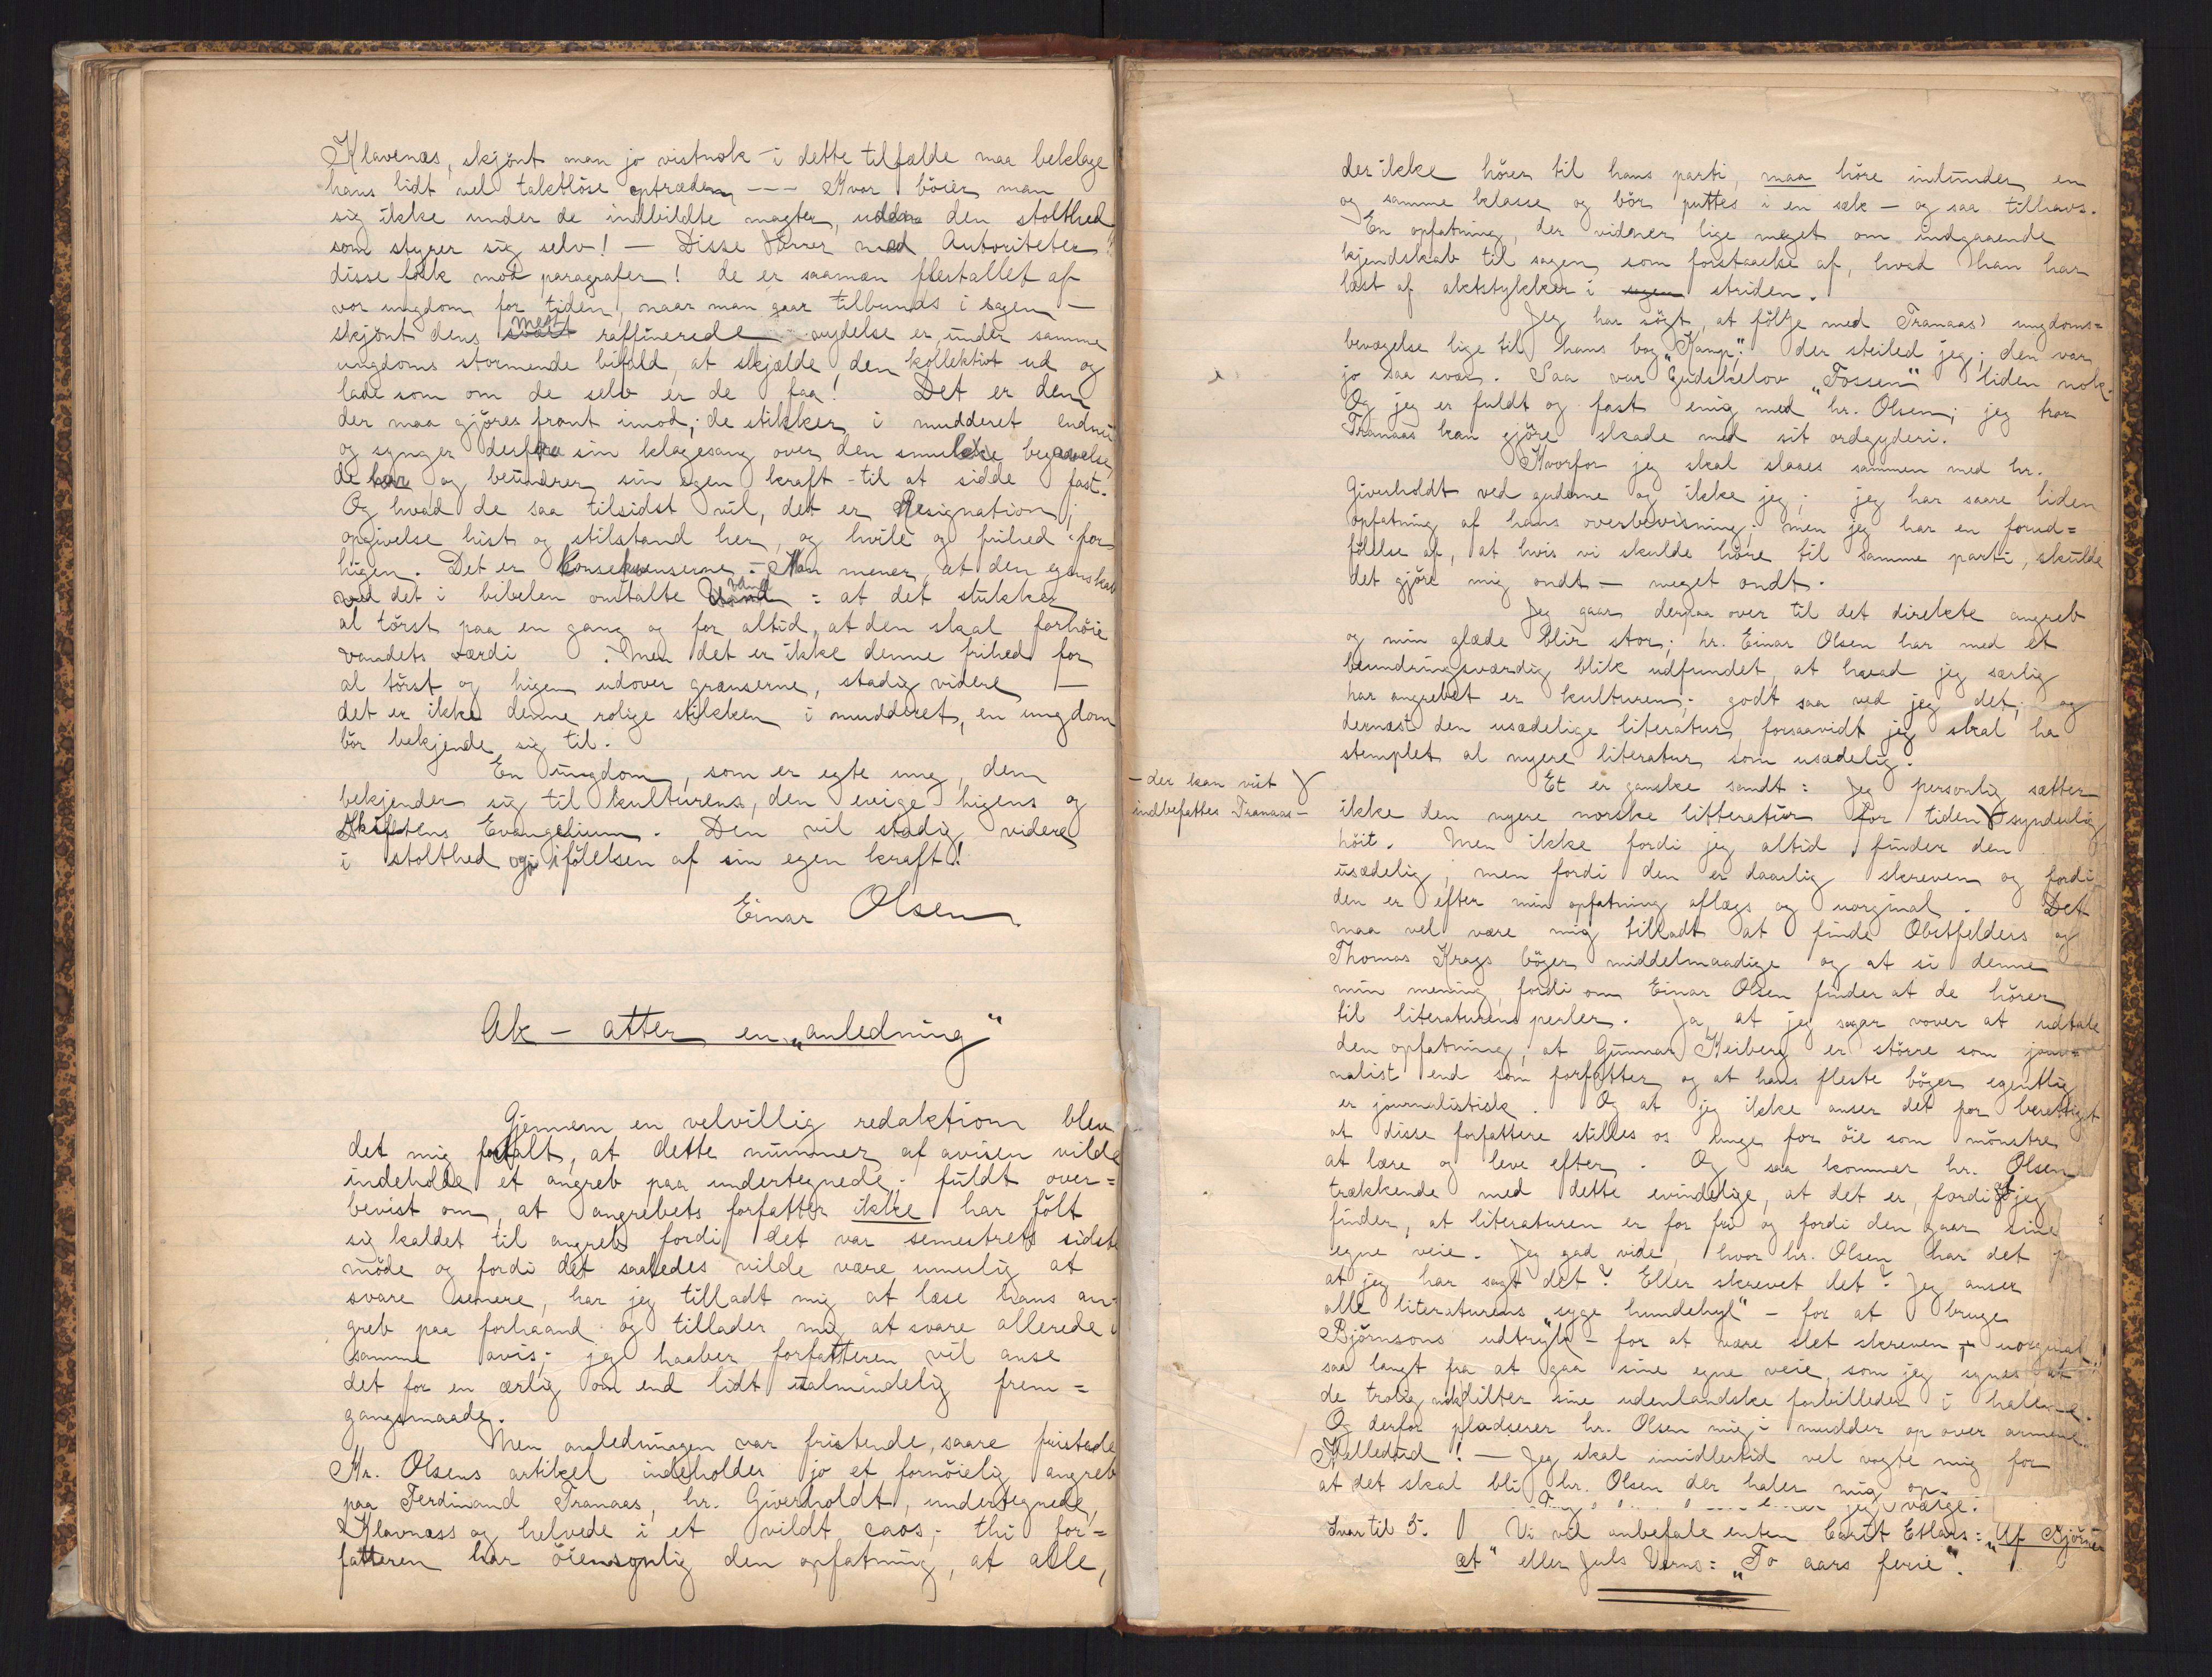 Klavenæs, skjönt man jo vistnok i dette tilfælde maa beklage
hans lidt vel taktlöse optræden --- Hvor böier man
sig ikke under de indbildte magter, uden den stolthed
som styrer sig selv! — Disse Herrer med Autoriteter!
disse folk med paragrafer! de er saamæn flertallet af
vor ungdom for tiden, naar man gaar tilbunds i sagen —
skjönt dens mest raffinerede nydelse er, under samme
ungdoms stormende bifald, at skjælde den kollektivt ud og
lade som om de selv er de faa! Det er dem
der maa gjöres front imod; de stikker i mudderet endnu
og synger derfra sin klagesang over den smule begavelse
de har og beundrer sin egen kraft - til at sidde fast.
Og hvad de saa tilsidst vil, det er Resignation;
opgivelse hist og stilstand her, og hvile og frihed for
higen. Det er Konsekvenserne. – Man mener, at den egenskab
ved det i bibelen omtalte vand : at det slukker
al törst paa en gang og for altid, at den skal forhöie
vandets værdi . Men det er ikke denne frihed for
al törst og higen udover grænserne, stadig videre —
det er ikke denne rolige stikken i mudderet, en ungdom
bör bekjende sig til.
En ungdom, som er egte ung, den
bekjender sig til kulturens, den evige higens og
Skiftens Evangelium. Den vil stadig videre
i stolthed og i fölelsen af sin egen kraft!
Einar Olsen
Ak – atter en „anledning“
Gjennem en velvillig redaktion blev
det mig fortalt, at dette nummer af avisen vilde
indeholde et angreb paa undertegnede; fuldt over=
bevist om, at angrebets forfatter ikke har fölt
sig kaldet til angreb fordi det var semestrets sidste
möde og fordi det saaledes vilde være umulig at
svare senere, har jeg tilladt mig at læse hans an-
greb paa forhaand og tillader mig at svare allerede i
samme avis; jeg haaber forfatteren vil anse
det for en ærlig om end lidt ualmindelig frem=
gangsmaade.
Men anledningen var fristende, saare fristende
Hr. Olsens artikel indeholder jo et fornöielig angreb
paa Ferdinand Tranaas, hr. Giverholdt, undertegnede,
Klavnæss og helvede i et vildt caos; thi for=
fatteren har öiensynlig den opfatning, at alle,
der ikke hörer til hans parti, maa höre indunder en
og samme klasse og bör puttes i en sæk — og saa tilhavs.
En opfatning, der vidner lige meget om indgaaende
kjendskab til sagen som forstaaelse af, hvad han har
læst af aktstykker i sagen striden.
Jeg har sögt at fölge med Tranaas' ungdoms=
bevægelse lige til hans bog „Kamp“; der steiled jeg; den var
jo saa svær. Saa var Gudskelov „Fossen“ liden nok.
Og jeg er fuldt og fast enig med hr. Olsen; jeg tror
Tranaas kan gjöre skade med sit ordgyderi.
Hvorfor jeg skal slaaes sammen med hr.
Giverholdt ved guderne og ikke jeg; jeg har saare liden
opfatning af hans overbevisning; men jeg har en forud=
fölelse af, at hvis vi skulde höre til samme parti, skulde
det gjöre mig ondt — meget ondt.
Jeg gaar derpaa over til det direkte angreb
og min glæde blir stor; hr. Einar Olsen har med et
beundringsværdig blik udfundet, at hvad jeg særlig
har angrebet er kulturen; godt saa ved jeg det; og
dernæst den usædelige literatur, forsaavidt jeg skal ha
stemplet al nyere literatur som usædelig.
Et er ganske sandt: Jeg personlig sætter
— der kan vist
indbefattes Tranaas —
ikke den nyere norske litteratur for tiden synderlig
höit. Men ikke fordi jeg altid finder den
usædelig; men fordi den er daarlig skreven og fordi
den er efter min opfatning aflægs og uorginal. Det
maa vel være mig tilladt at finde Obstfelders og
Thomas Krags böger middelmaadige og at si denne
min mening, fordi om Einar Olsen finder at de hörer
til literaturens perler. Ja, at jeg sogar vover at udtale
den opfatning, at Gunnar Heiberg er större som jour=
nalist end som forfatter og at hans fleste böger egentlig
er journalistisk. Og at jeg ikke anser det for berettiget
at disse forfattere stilles os unge for öie som mönstre
at lære og leve efter. Og saa kommer hr. Olsen
trækkende med dette evindelige, at det er, fordi at jeg
finder, at literaturen er for fri og fordi den gaar sine
egne veie. Jeg gad vide, hvor hr. Olsen har det fra
at jeg har sagt det? Eller skrevet det? Jeg anser
alle literaturens „syge hundehyl“ – for at bruge
Björnsons udtryk – for at være slet skreven, uorginal
saa langt fra at gaa sine egne veie, som jeg synes at
de trolig pilter sine udenlandske forbilleder i halerne.
Og derfor pladserer hr. Olsen mig i mudder op over armene.
Helledud! — Jeg skal imidlertid vel vogte mig for
at det skal bli hr. Olsen der haler mig op.
jeg vælge.
Svar til 5. Vi vil anbefale enten Carit Etlars: „Af Björne=
æt“ eller Juls Verns: „To aars ferie“.